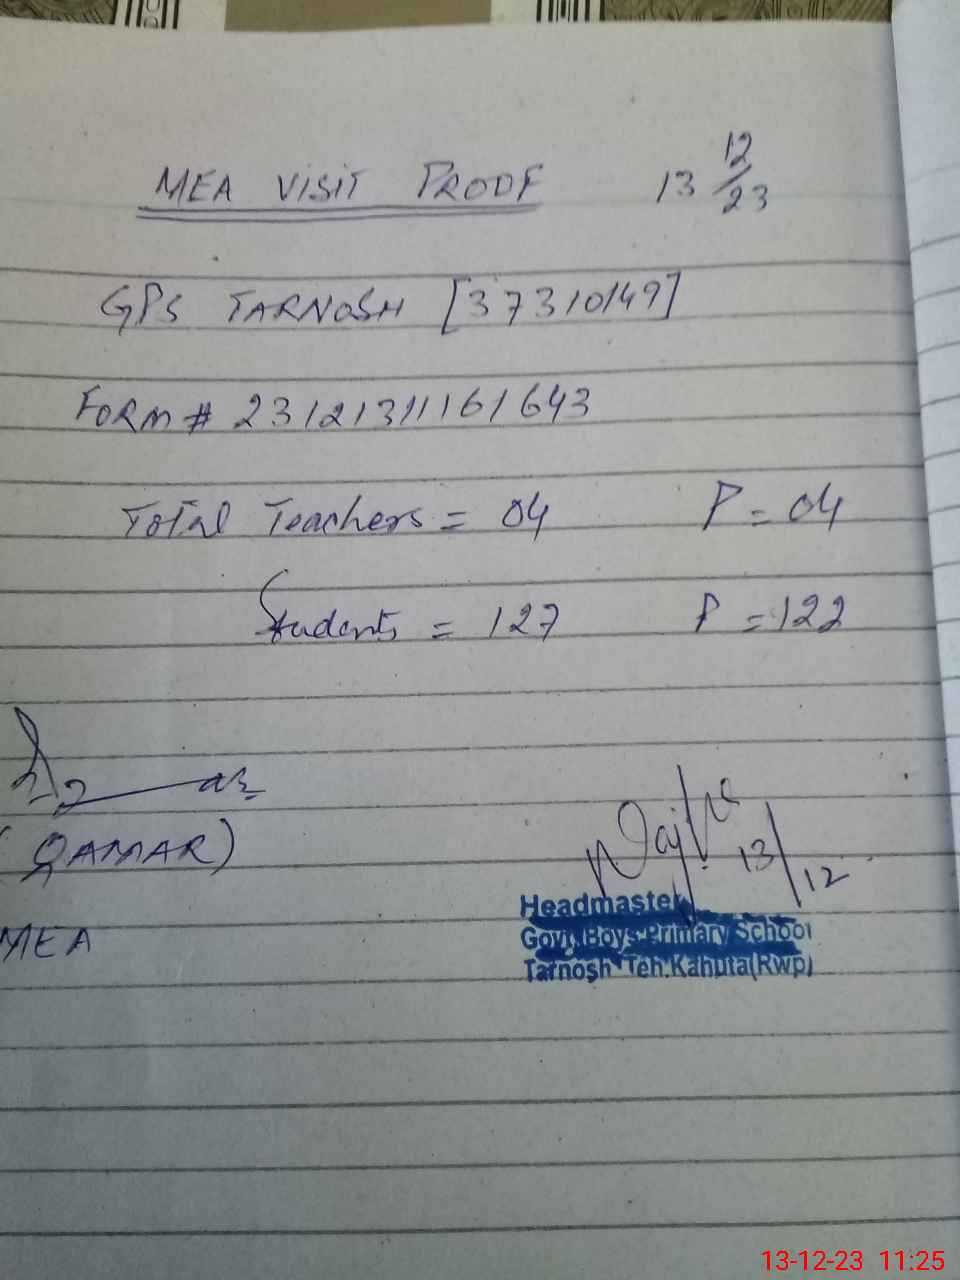 MEA VISIT PROOF 13 12/23
GPS TARNOSH [37310149]
FORM # 23121311161643
Total Teachers = 04 P = 04
Students = 127 P = 122
(QAMAR)
MEA
13/12
Headmaster
Govt. Boys Primary School
Tarnosh Teh. Kahuta(Rwp)
13-12-23 11:25